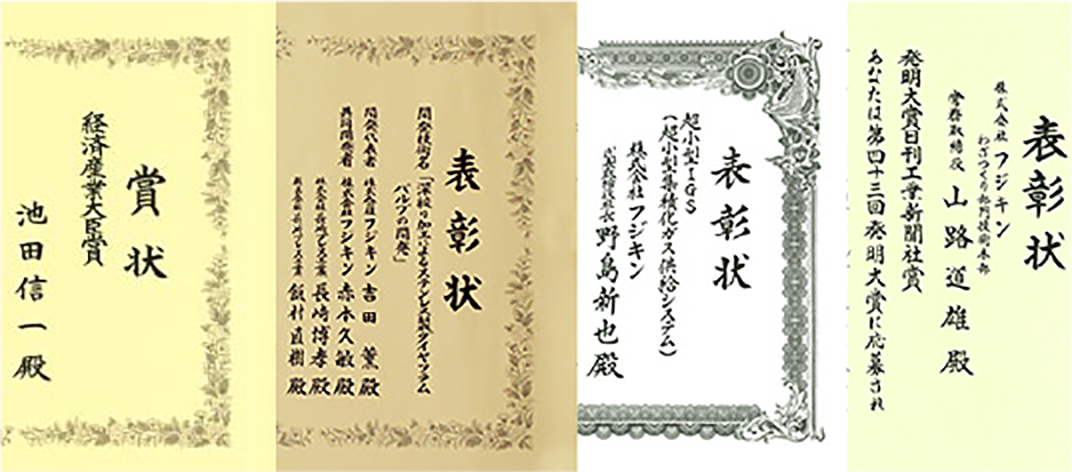 賞状
経済産業大臣賞
池田信一殿
表彰状
開発技術名「深絞り加工によるステンレス製ダイヤフラム
バルブの開発」
開発代表者 株式会社フジキン 吉田 薫 殿
共同開発者 株式会社フジキン 赤木久敏 殿
長崎博孝 殿
飯村直樹 殿
表彰状
超小型IGS
(超小型集積化ガス供給システム)
株式会社フジキン
野島新也殿
表彰状
株式会社フジキン
わざづくり部門技術本部
常務取締役 山路道雄殿
発明大賞日刊工業新聞社賞
あなたは第四十三回発明大賞に応募され